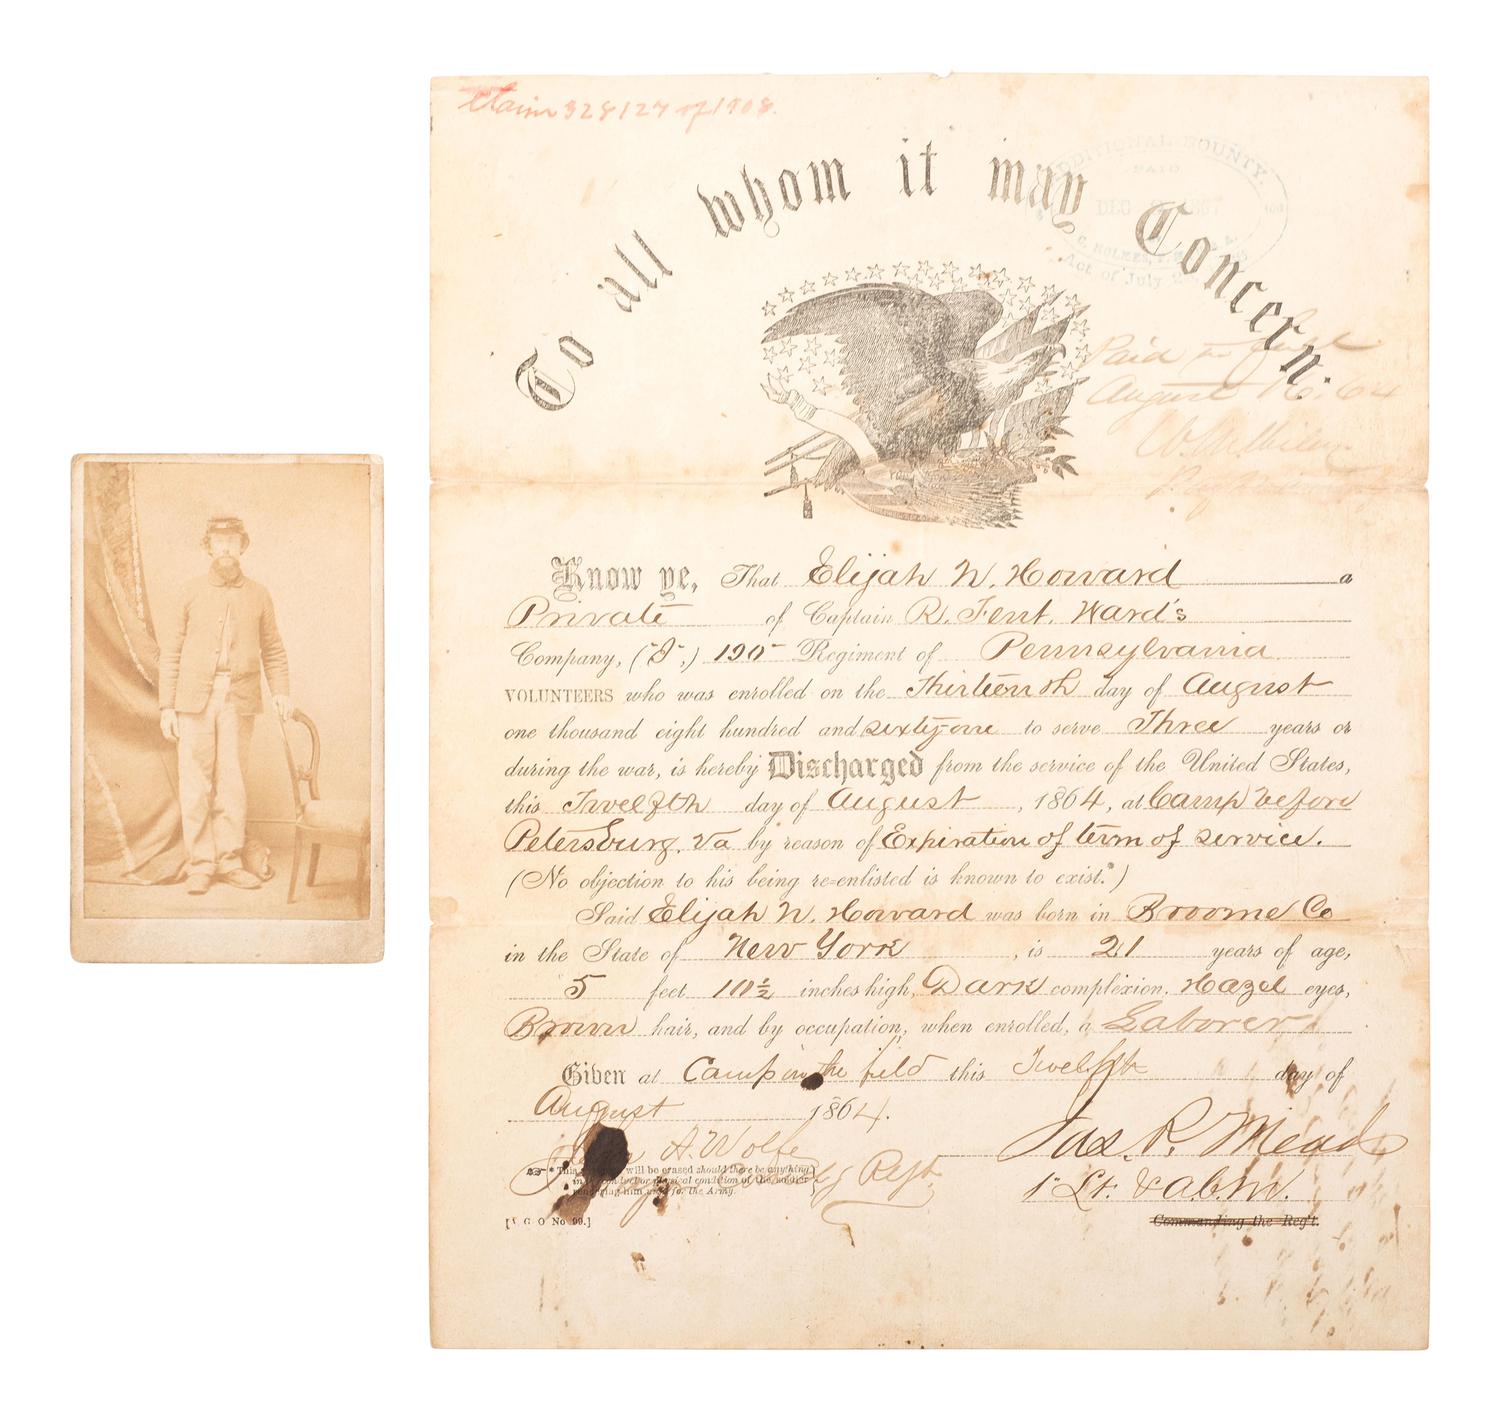 Claim 328127 of 1908.
To all whom it may Concern.
ADDITIONAL BOUNTY.
PAID
DEC 1867
Act of July
Paid in full
August 16. 64
Know ye, That Elijah W. Howard a
Private of Captain R. Fent. Ward's
Company, ( ) 190 Regiment of Pennsylvania
VOLUNTEERS who was enrolled on the Thirteenth day of August
one thousand eight hundred and sixty one to serve Three years or
during the war, is hereby Discharged from the service of the United States,
this Twelfth day of August , 1864, at Camp before
Petersburg, Va by reason of Expiration of term of service.
(No objection to his being re-enlisted is known to exist.*)
Said Elijah W. Howard was born in Broome Co
in the State of New York , is 21 years of age,
5 feet 10½ inches high, Dark complexion, Hazel eyes,
Brown hair, and by occupation, when enrolled, a Laborer
Given at Camp in the field this Twelfth day of
August 1864.
Jas. R. Mead
A. Wolfe
1st Lt. & A.C.M.
Regt.
* This will be erased should there be anything
in physical condition of the soldier
him for the Army.
[A G O No 99.]
Commanding the Reg't.